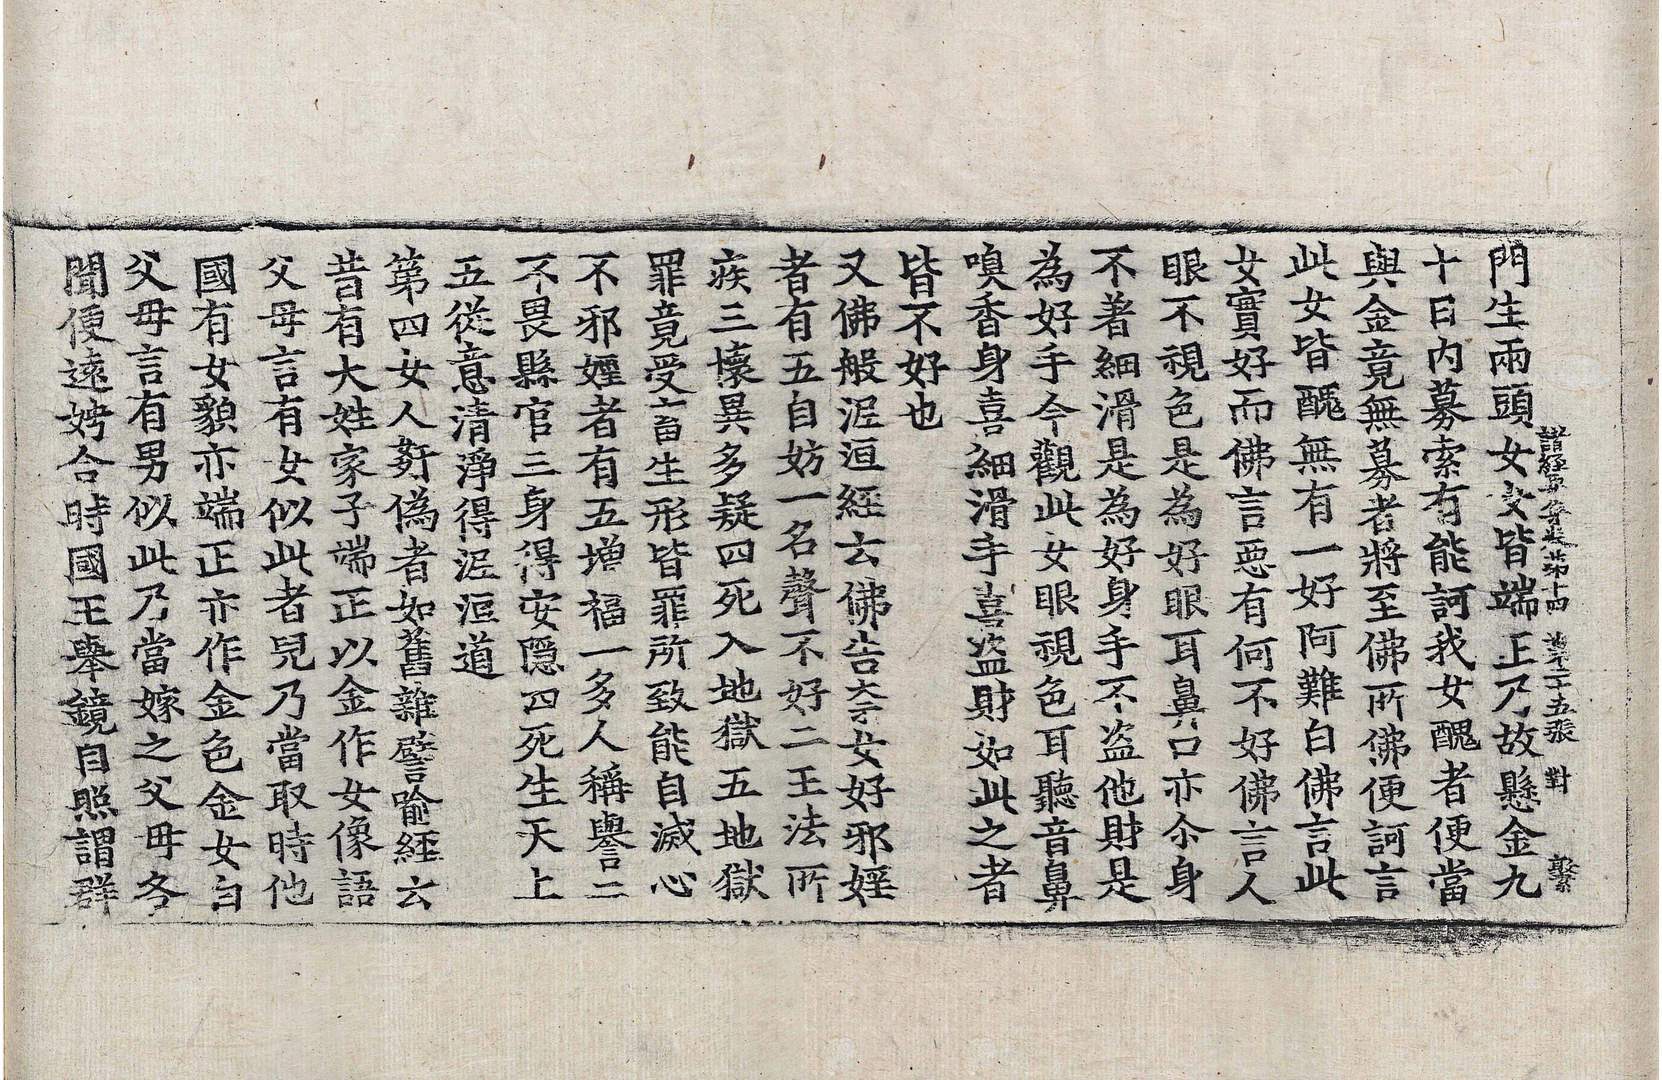 諸經要集第十四 第二十五張 對
門生兩頭女女皆端正乃故懸金九
十日內募索有能訶我女醜者便當
與金竟無募者將至佛所佛便訶言
此女皆醜無有一好阿難白佛言此
女實好而佛言惡有何不好佛言人
眼不視色是為好眼耳鼻口亦尒身
不著細滑是為好身手不盜他財是
為好手今觀此女眼視色耳聽音鼻
嗅香身喜細滑手喜盜財如此之者
皆不好也
又佛般泥洹經云佛告奈女好邪婬
者有五自妨一名聲不好二王法所
疾三懷異多疑四死入地獄五地獄
罪竟受畜生形皆罪所致能自滅心
不邪婬者有五增福一多人稱譽二
不畏縣官三身得安隱四死生天上
五從意清淨得泥洹道
第四女人姧偽者如舊雜譬喻經云
昔有大姓家子端正以金作女像語
父母言有女似此者兒乃當取時他
國有女貌亦端正亦作金色金女白
父母言有男似此乃當嫁之父母各
聞便遠娉合時國王舉鏡自照謂群